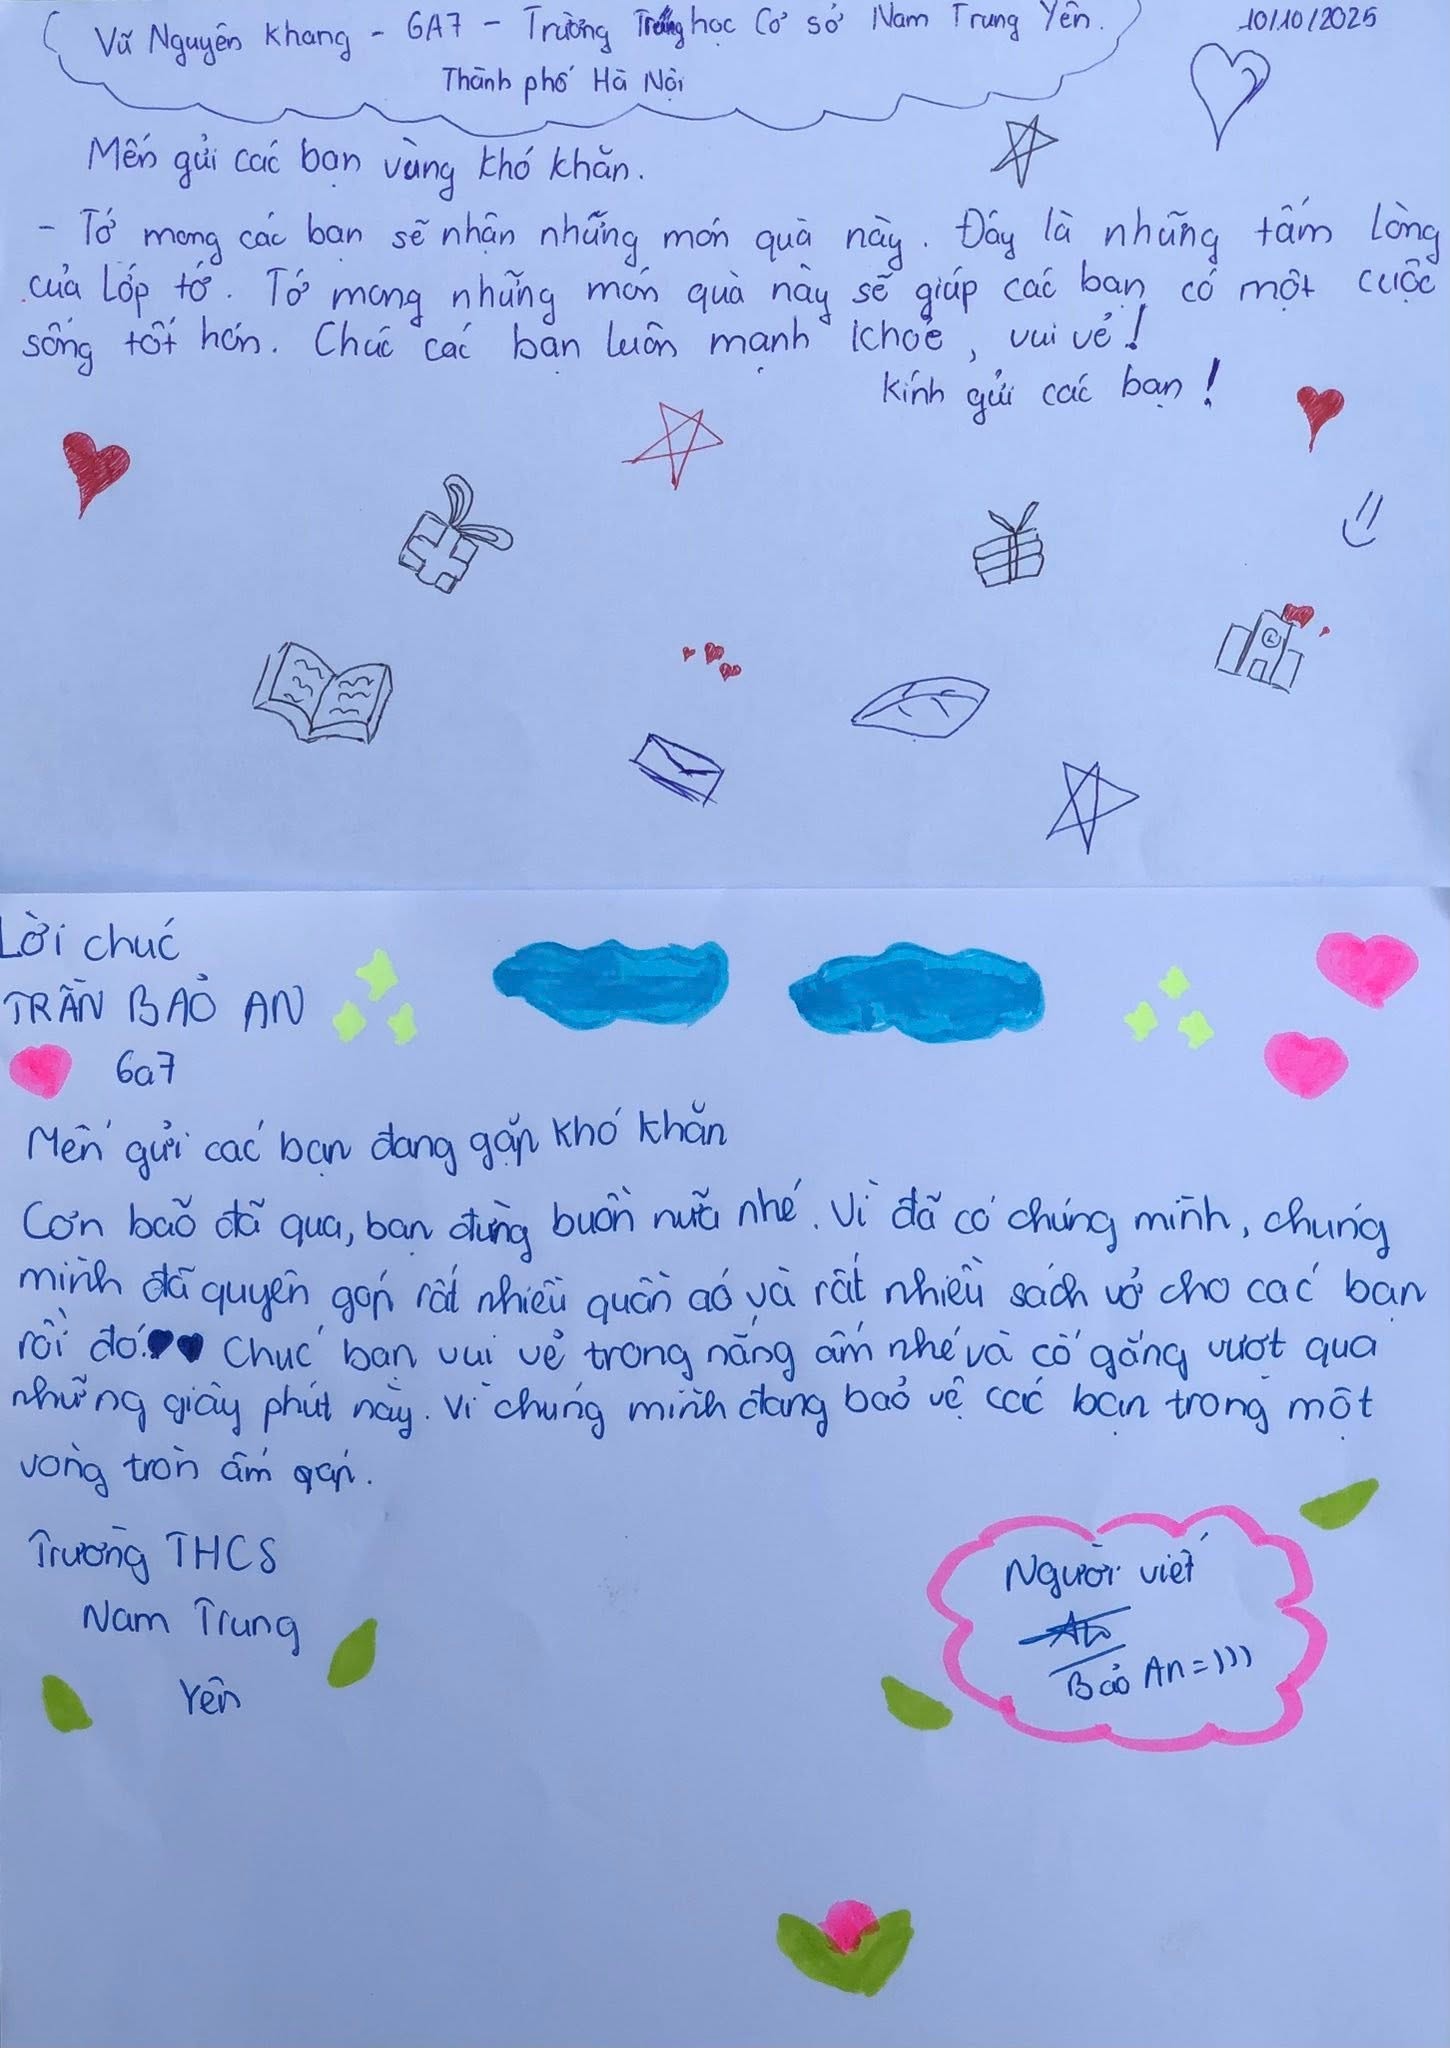 Vũ Nguyên Khang - 6A7 - Trường Trung học Cơ sở Nam Trung Yên.
10/10/2025
Thành phố Hà Nội
Mến gửi các bạn vùng khó khăn.
- Tớ mong các bạn sẽ nhận những món quà này. Đây là những tấm lòng
của lớp tớ. Tớ mong những món quà này sẽ giúp các bạn có một cuộc
sống tốt hơn. Chúc các bạn luôn mạnh khoẻ, vui vẻ!
Kính gửi các bạn!
Lời chúc
TRẦN BẢO AN
6a7
Mến gửi các bạn đang gặp khó khăn
Cơn bão đã qua, bạn đừng buồn nữa nhé. Vì đã có chúng mình, chúng
mình đã quyên góp rất nhiều quần áo và rất nhiều sách vở cho các bạn
rồi đó. Chúc bạn vui vẻ trong nắng ấm nhé và cố gắng vượt qua
những giây phút này. Vì chúng mình đang bảo vệ các bạn trong một
vòng tròn ấm áp.
Trường THCS
Nam Trung
Yên
Người viết
Bảo An =)))